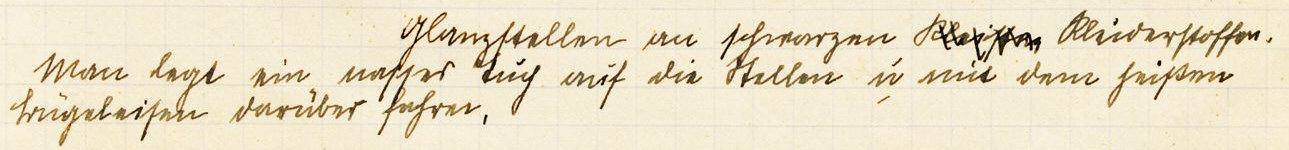 Glanzstellen an schwarzen Kleiderstoffen.
Man legt ein nasses Tuch auf die Stellen u mit dem heißen
Bügeleisen darüber fahren.